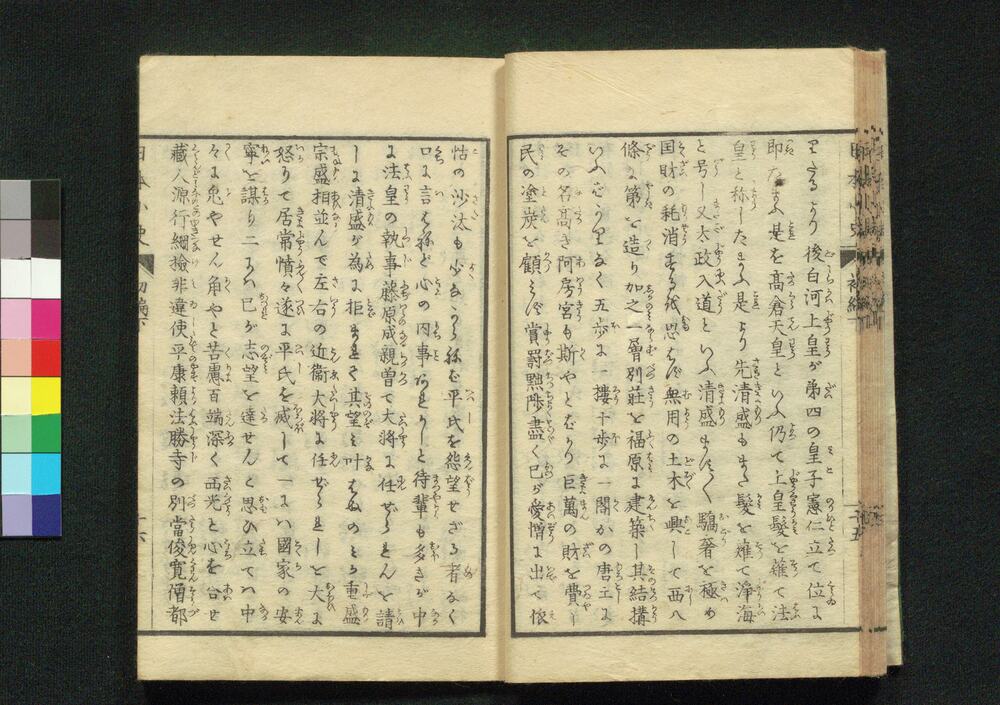 りたるより後白河上皇が弟四の皇子憲仁立て位に
即たまふ是を髙倉天皇といふ仍て上皇髮を薙て法
皇と称したまふ是より先清盛もまた髮を薙て淨海
と号し又太政入道といふ清盛ます〱驕奢を極め
国財の耗消するを思はず無用の土木を興して西八
條に第を造り加之一層別荘を福原に建築し其結構
いふばかりなく五歩に一摟十歩に一閣かの唐土に
その名髙き阿房宮も斯やとばかり巨萬の財を費し
民の塗炭を顧みず賞罰黙陟盡く己が愛憎に出て依
怙の沙汰も少なからねば平氏を怨望せざる者なく
口に言はねど心の内事あれかしと待輩も多きが中
に法皇の執事藤原成親曽て大将に任ぜられんと請
しに清盛が為に拒まれて其望み叶はぬのみか重盛
宗盛相並んで左右の近衞大将に任ぜられしと大に
怒りて居常憤々遂に平氏を滅して一には國家の安
寧を謀り二には己が志望を達せんと思ひ立ては中
々に兎やせん角やと苦慮百端深く西光と心を合せ
藏人源行綱撿非違使平康頼法勝寺の別當俊寛僧都